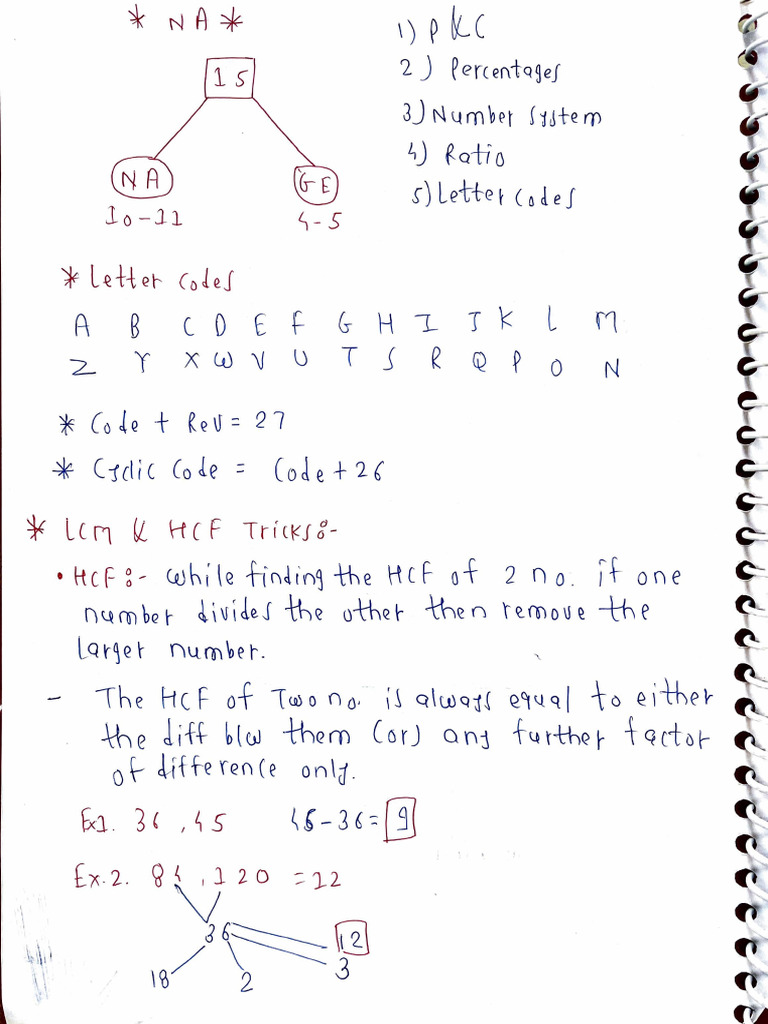 * NA *
15
NA
GE
10-11
4-5
1) PKC
2) Percentages
3) Number System
4) Ratio
5) Letter Codes
* Letter Codes
A B C D E F G H I J K L M
Z Y X W V U T S R Q P O N
* Code + Rev = 27
* Cyclic Code = Code + 26
* LCM & HCF Tricks:-
• HCF:- While finding the HCF of 2 no. if one
number divides the other then remove the
larger number.
- The HCF of Two no. is always equal to either
the diff b/w them (or) any further factor
of difference only.
Ex1. 36, 45 45-36= 9
Ex.2. 84, 120 = 12
36
12
18
2
3